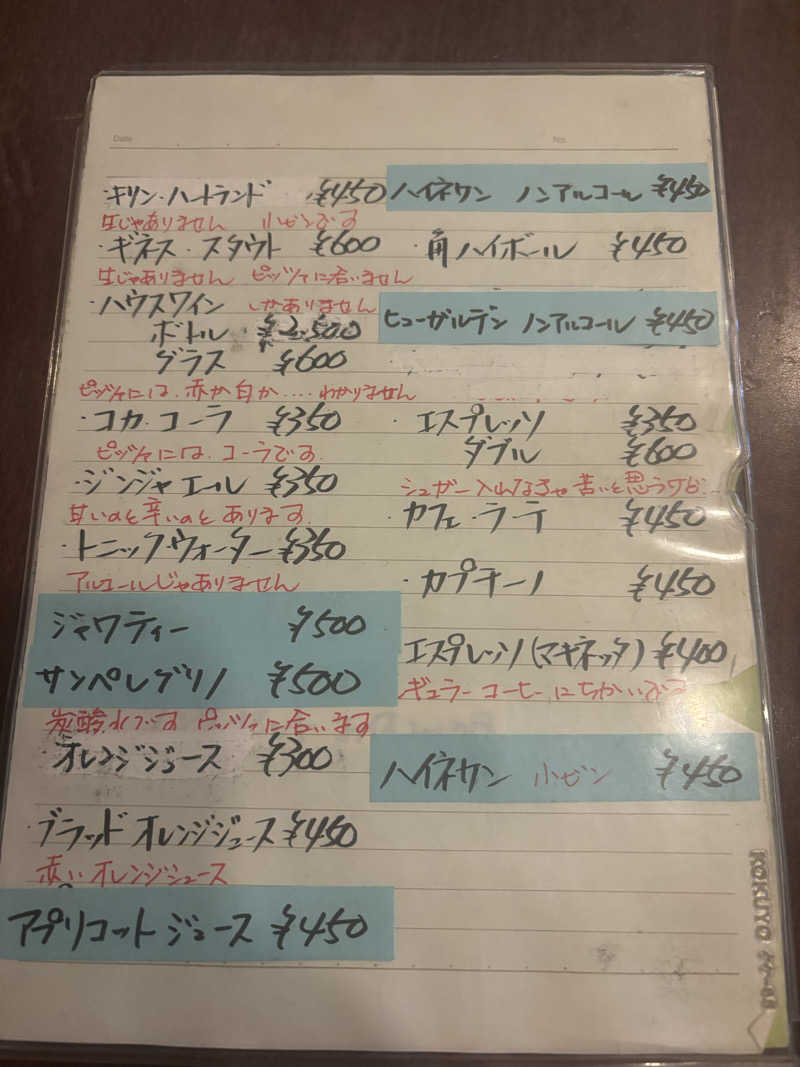 Date
No.
・キリン・ハートランド ¥450
生じゃありません 小ビンです
・ギネス・スタウト ¥600
生じゃありません ピッツァに合いません
・ハウスワイン しかありません
ボトル ¥2,500
グラス ¥600
ピッツァには、赤か白か‥‥わかりません
・コカ・コーラ ¥350
ピッツァには、コーラです
・ジンジャエール ¥350
甘いのと辛いのとあります
・トニックウォーター ¥350
アルコールじゃありません
ジャワティー ¥500
サンペレグリノ ¥500
炭酸水です ピッツァに合います
・オレンジジュース ¥300
・ブラッドオレンジジュース ¥450
赤いオレンジジュース
アプリコットジュース ¥450
ハイネケン ノンアルコール ¥450
・角ハイボール ¥450
ヒューガルデン ノンアルコール ¥450
・エスプレッソ ¥350
ダブル ¥600
シュガー入れなきゃ苦いと思うケど
・カフェ・ラーテ ¥450
・カプチーノ ¥450
エスプレッソ(マキネッタ) ¥400
ギュラーコーヒーにちかいです
ハイネケン 小ビン ¥450
KOKUYO